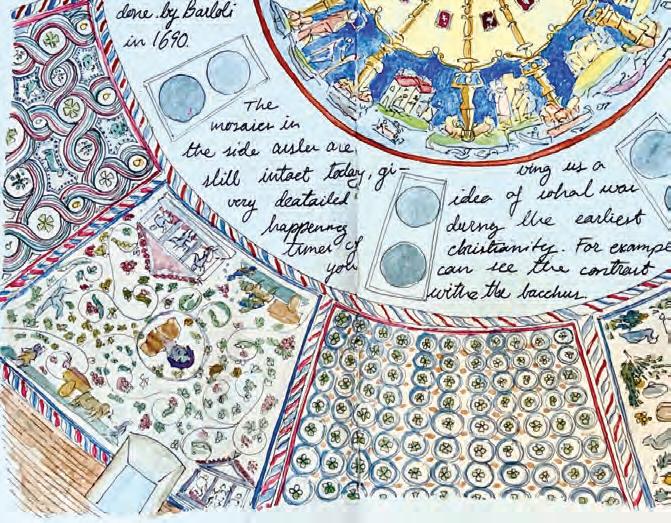 done by Bartoli
in 1690.
The
mosaics in
the side aisles are
still intact today, gi-
very deatailed
happennes
times of
you
ving us a
idea of whal was
during the earliest
christianity. For example
can see the contrast
withe the bacchus.